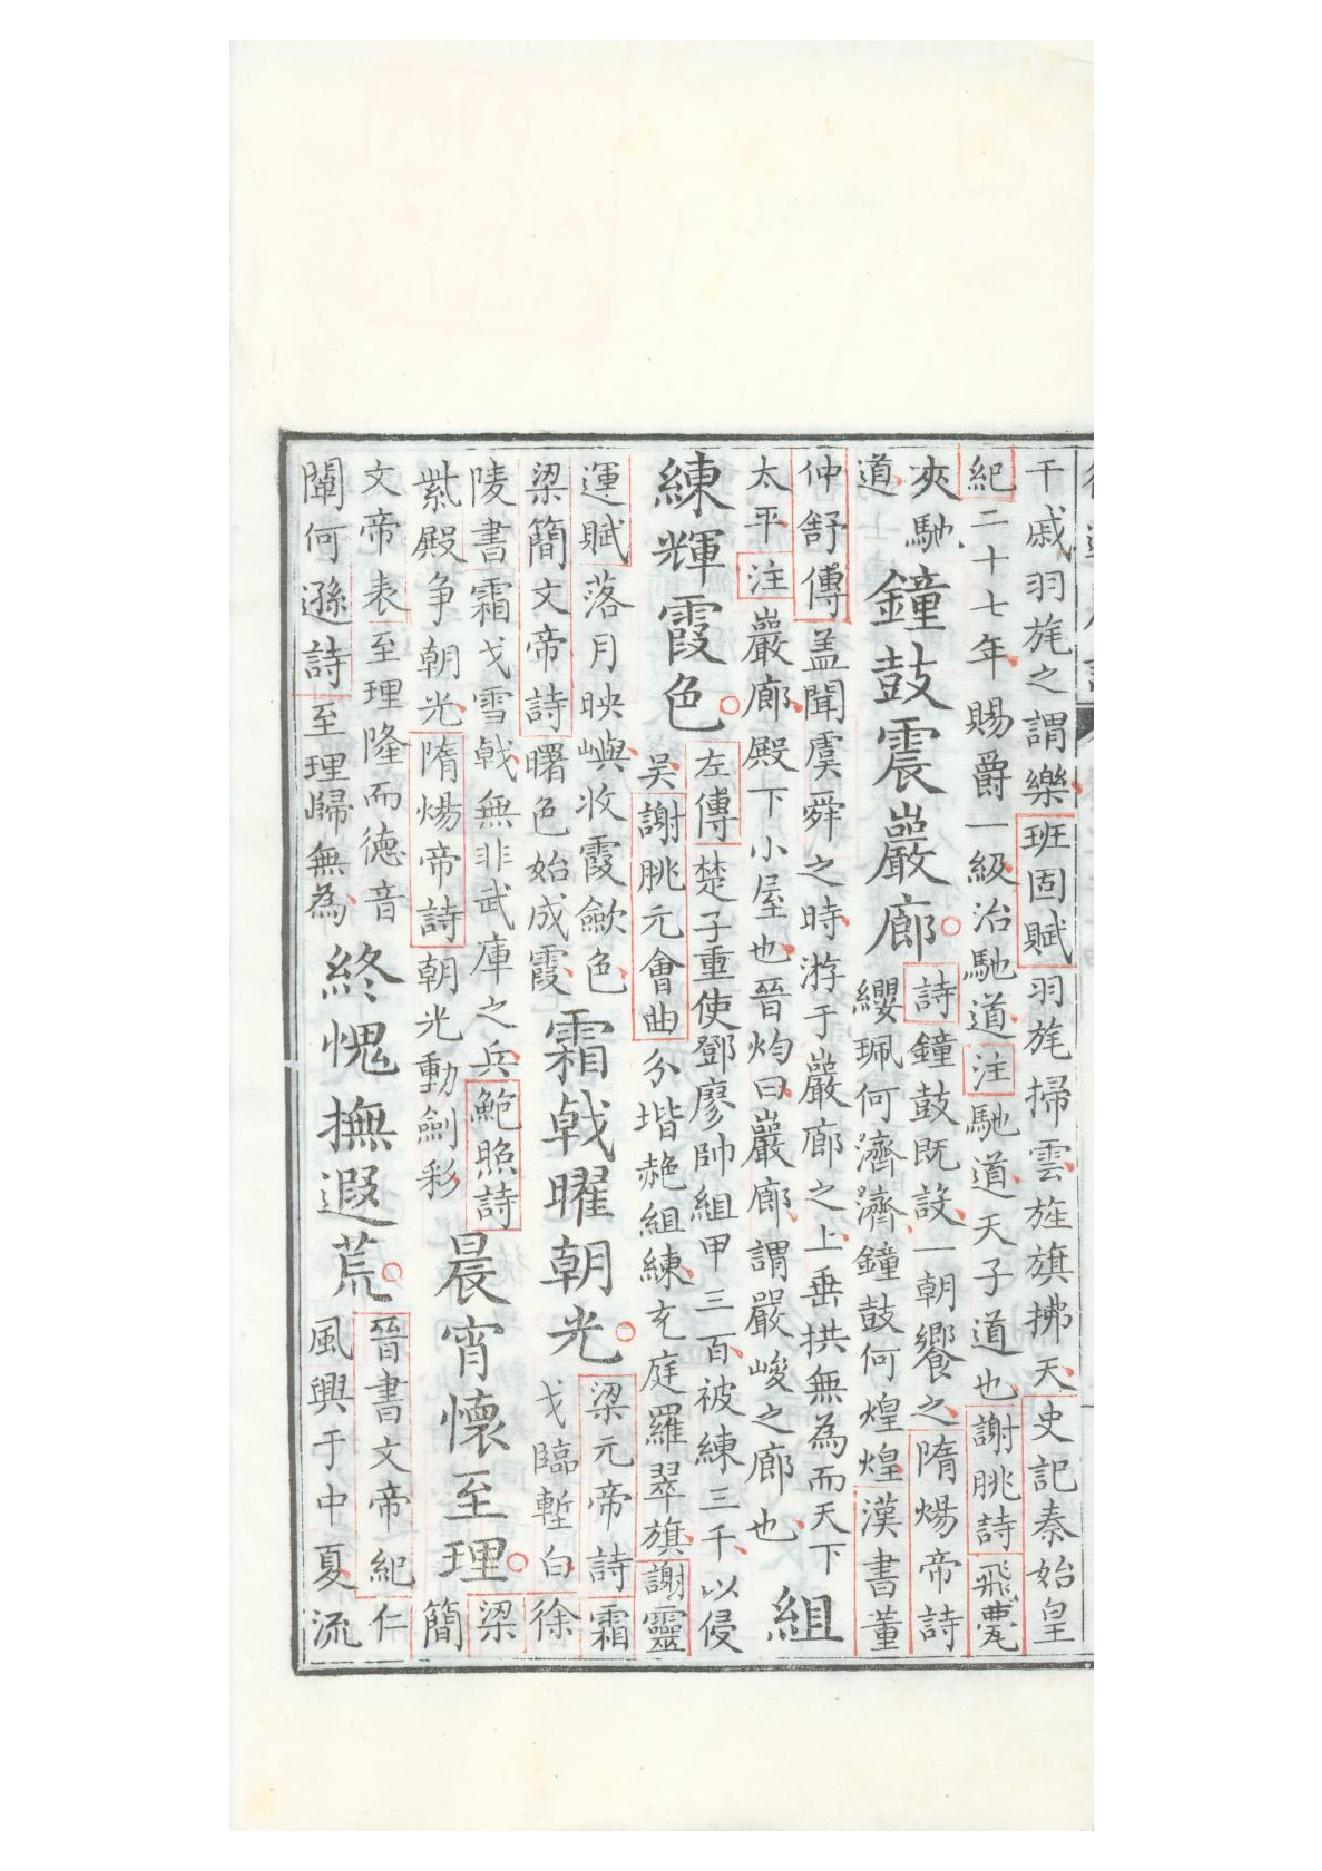 干戚羽旄之謂樂班固賦羽旄掃雲旌旗拂天史記秦始皇
紀二十七年賜爵一級治馳道注馳道天子道也謝朓詩飛甍
夾馳
道
鐘鼓震巖廊
詩鐘鼓既設一朝饗之隋煬帝詩
纓珮何濟濟鐘鼓何煌煌漢書董
仲舒傳蓋聞虞舜之時游于巖廊之上垂拱無為而天下
太平注巖廊殿下小屋也晉灼曰巖廊謂嚴峻之廊也
組
練輝霞色
左傳楚子重使鄧廖帥組甲三百被練三千以侵
吳謝朓元會曲分堦艴組練充庭羅翠旗謝靈
運賦落月映嶼收霞歛色
梁簡文帝詩曙色始成霞
霜戟曜朝光
梁元帝詩霜
戈臨塹白徐
陵書霜戈雪戟無非武庫之兵鮑照詩
紫殿爭朝光隋煬帝詩朝光動劍彩
晨宵懷至理
梁
簡
文帝表至理隆而德音
闡何遜詩至理歸無為
終愧撫遐荒
晉書文帝紀仁
風興于中夏流